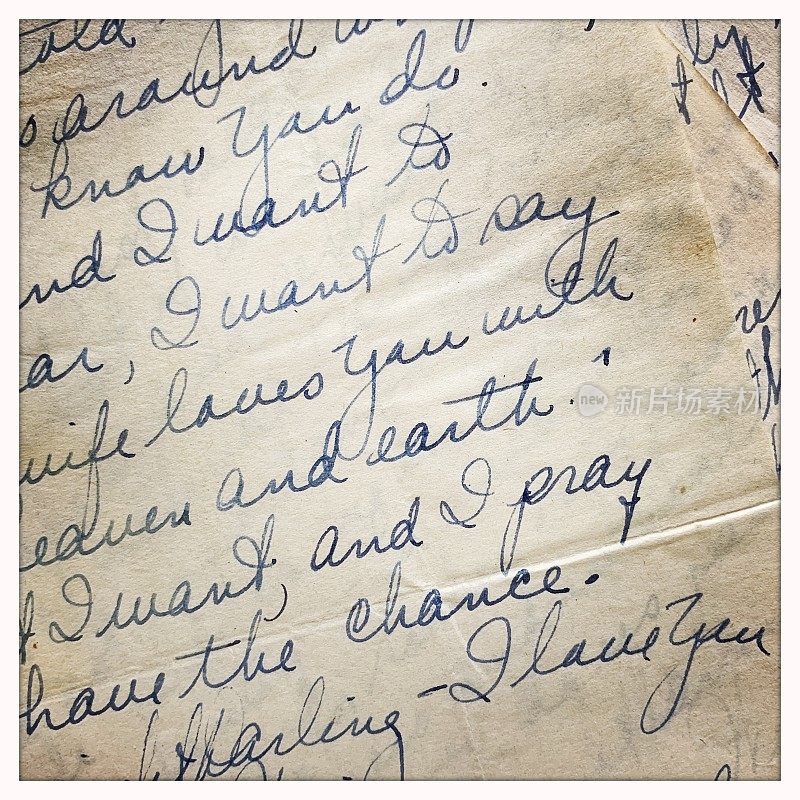 told
o around
by
know you do.
and I want to
ear, I want to say
wife loves you with
heaven and earth."
I want, and I pray
have the chance.
Darling – I love you
new 新片场素材